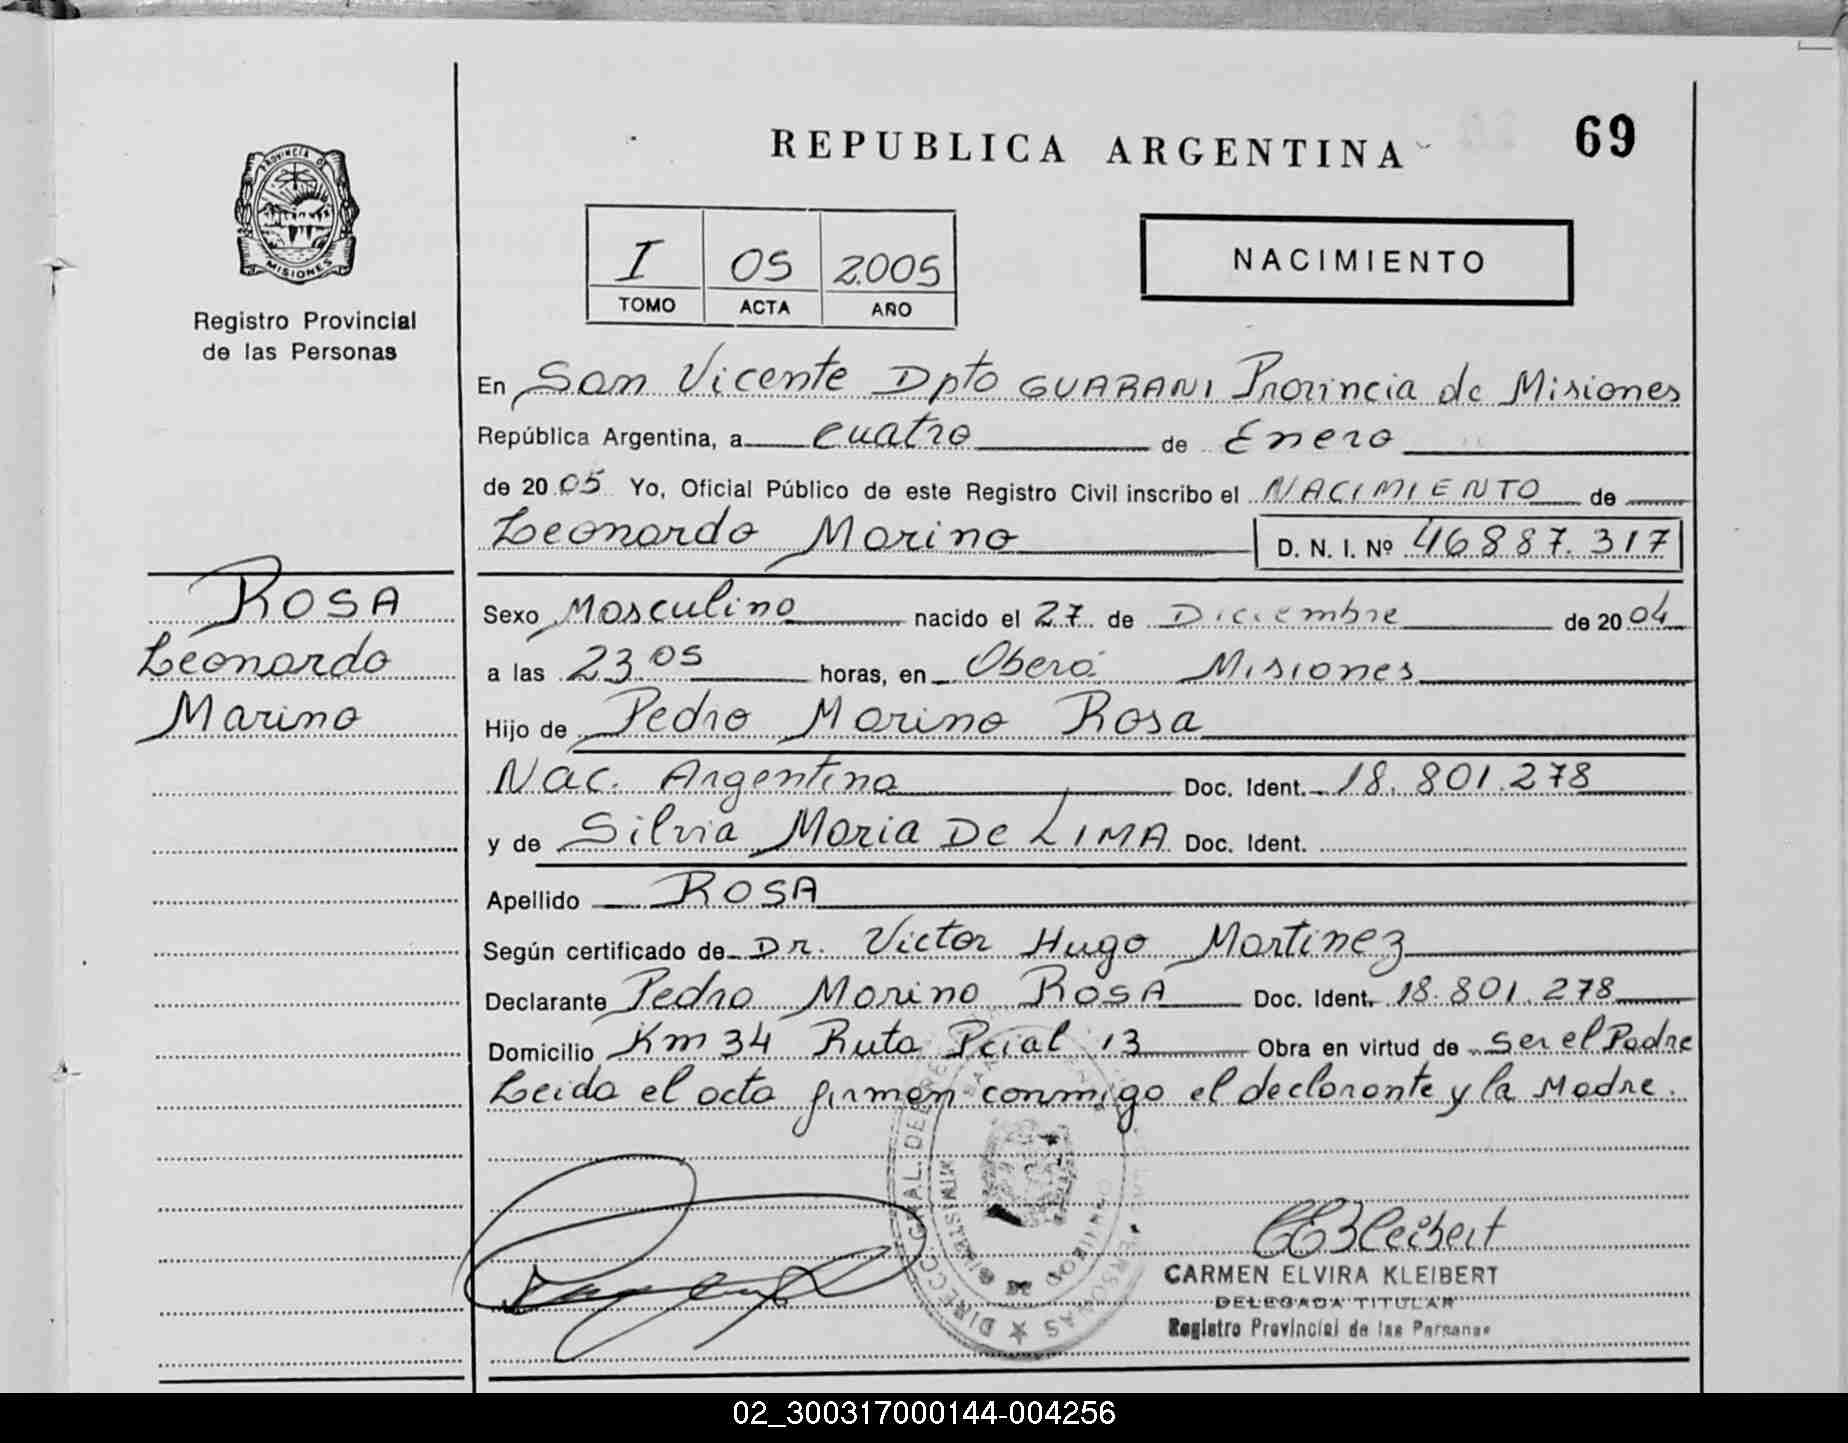 REPUBLICA ARGENTINA
69
PROVINCIA DE
MISIONES
Registro Provincial
de las Personas
I 05 2005
TOMO ACTA AÑO
NACIMIENTO
En San Vicente Dpto GUARANI Provincia de Misiones
República Argentina, a cuatro de Enero
de 2005 Yo, Oficial Público de este Registro Civil inscribo el NACIMIENTO de
Leonardo Marino D. N. I. Nº 46887.317
ROSA
Leonardo
Marino
Sexo Masculino nacido el 27 de Diciembre de 2004
a las 23 05 horas, en Oberá Misiones
Hijo de Pedro Marino Rosa
Nac. Argentina Doc. Ident. 18.801.278
y de Silvia Maria De LIMA Doc. Ident.
Apellido ROSA
Según certificado de Dr. Victor Hugo Martinez
Declarante Pedro Marino ROSA Doc. Ident. 18.801.278
Domicilio Km 34 Ruta Pcial 13 Obra en virtud de Ser el Padre
Leida el acta firman conmigo el declarante y la Madre.
CEKleibert
CARMEN ELVIRA KLEIBERT
DELEGADA TITULAR
Registro Provincial de las Personas
02_300317000144-004256